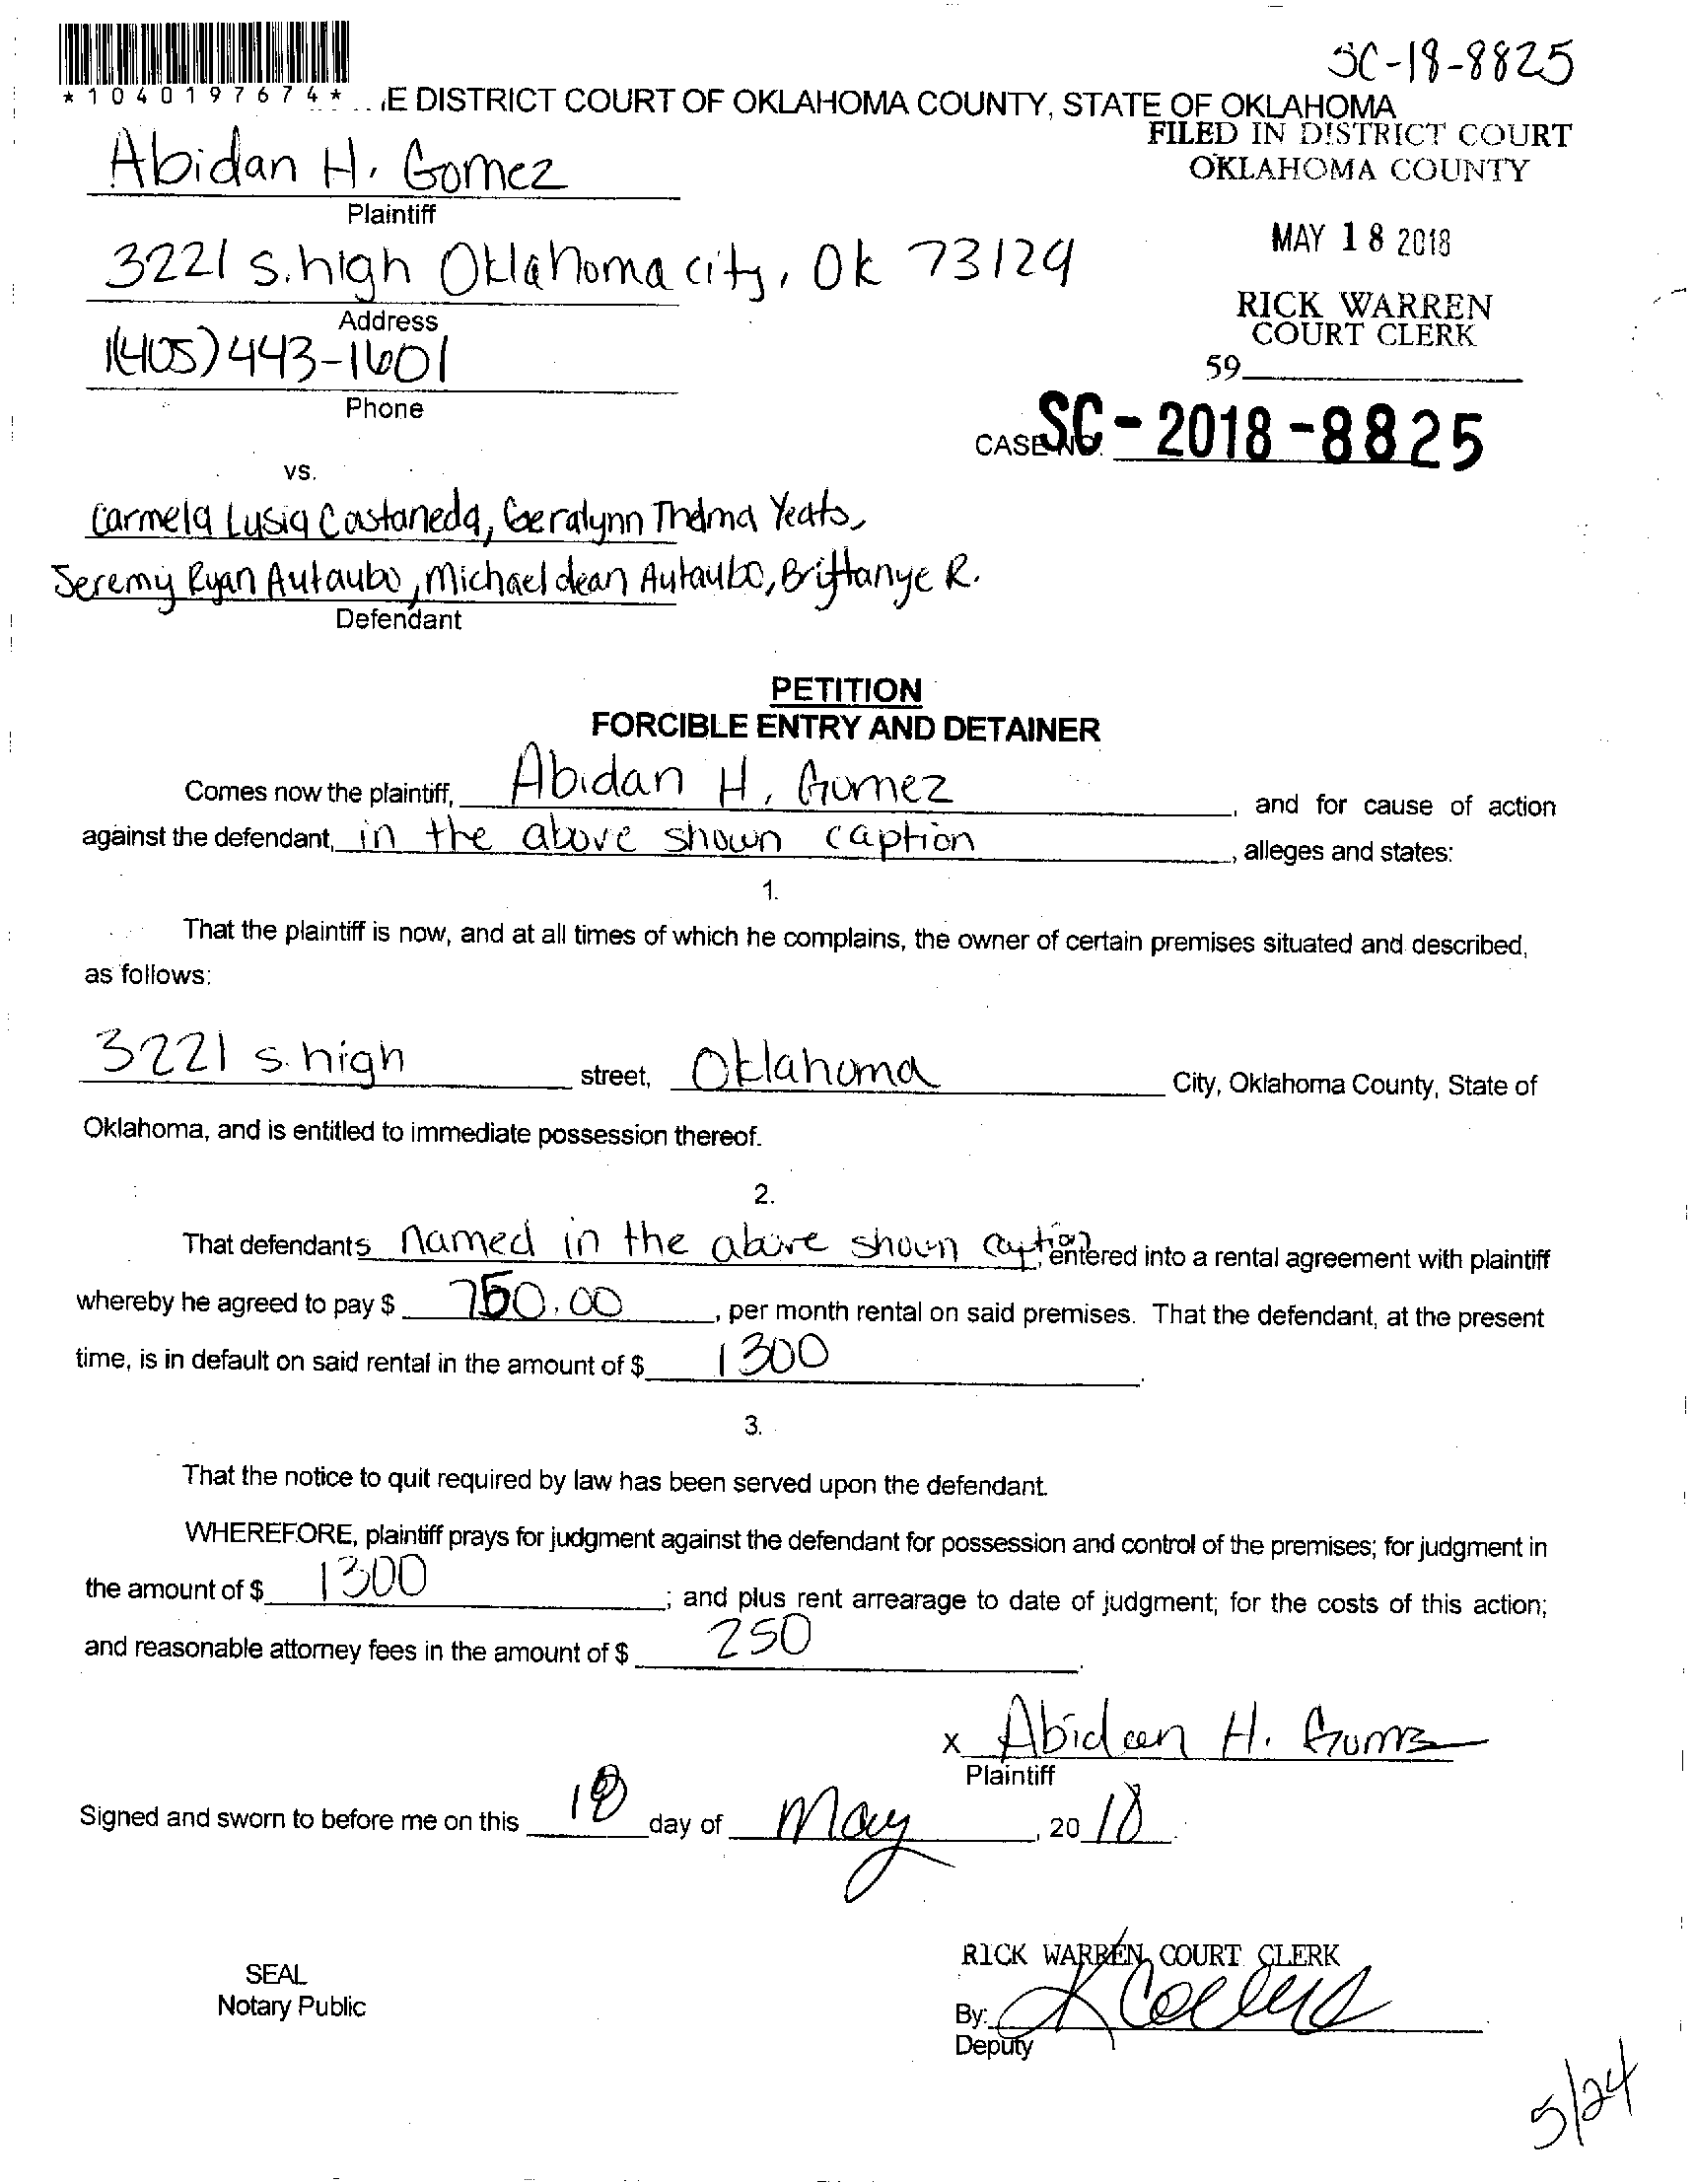 SC-18-8825
*1040197674* E DISTRICT COURT OF OKLAHOMA COUNTY, STATE OF OKLAHOMA
FILED IN DISTRICT COURT
OKLAHOMA COUNTY
Abidan H. Gomez
Plaintiff
MAY 18 2018
3221 s. high Oklahoma city, Ok 73129
Address
RICK WARREN
COURT CLERK
1(405) 443-1601
59
Phone
CASE NO. SC-2018-8825
vs.
Carmela Lusia Castaneda, Geralynn Thelma Yeats,
Jeremy Ryan Autaubo, Michael dean Autaubo, Brittanye R.
Defendant
PETITION
FORCIBLE ENTRY AND DETAINER
Comes now the plaintiff, Abidan H. Gomez, and for cause of action
against the defendant, in the above shown caption, alleges and states:
1.
That the plaintiff is now, and at all times of which he complains, the owner of certain premises situated and described,
as follows:
3221 s. high street, Oklahoma City, Oklahoma County, State of
Oklahoma, and is entitled to immediate possession thereof.
2.
That defendants named in the above shown caption, entered into a rental agreement with plaintiff
whereby he agreed to pay $ 750.00, per month rental on said premises. That the defendant, at the present
time, is in default on said rental in the amount of $ 1300.
3.
That the notice to quit required by law has been served upon the defendant.
WHEREFORE, plaintiff prays for judgment against the defendant for possession and control of the premises; for judgment in
the amount of $ 1300; and plus rent arrearage to date of judgment; for the costs of this action;
and reasonable attorney fees in the amount of $ 250.
x Abidan H. Gomz
Plaintiff
Signed and sworn to before me on this 18 day of May, 2018.
RICK WARREN, COURT CLERK
SEAL
Notary Public
By:
Deputy
5/24